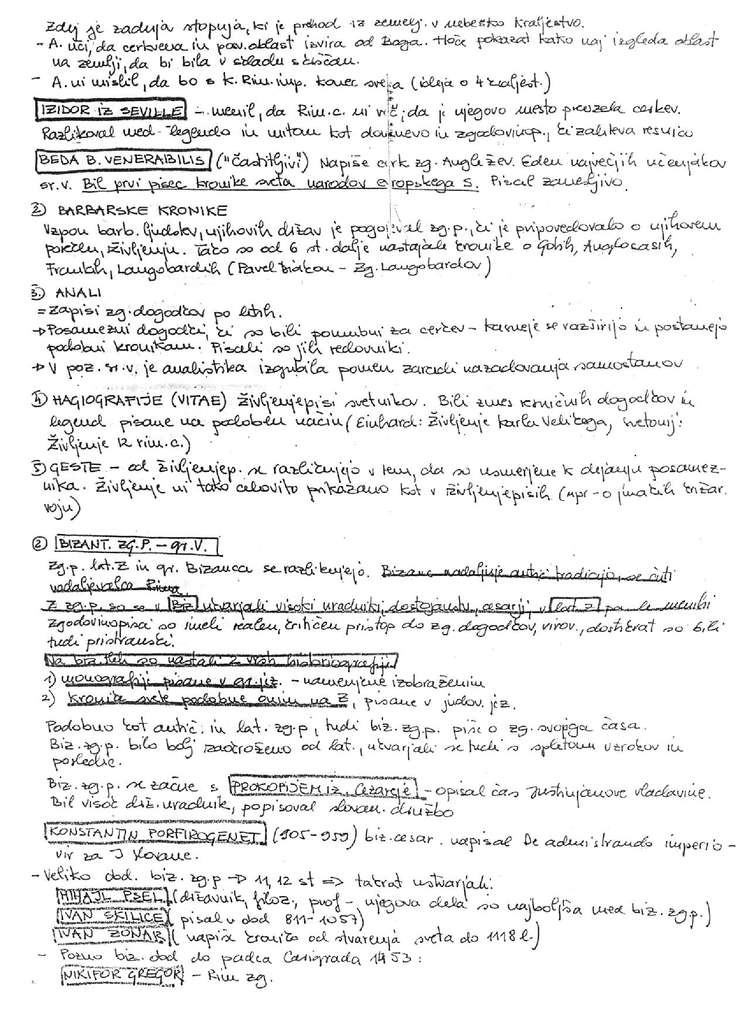 Zdaj je zadnja stopnja, ki je prehod iz zemelj. v nebeško kraljestvo.
- A. uči, da cerkvena in pov. oblast izvira od Boga. Hoče pokazat kako naj izgleda oblast
na zemlji, da bi bila v skladu s
- A. ni mislil, da bo s k. Rim. imp. konec sveta (ideja o 4 kraljest.)
IZIDOR IZ SEVILLE - menil, da Rim. c. ni več, da je njegovo mesto prevzela cerkev.
Razlikoval med legendo in mitom kot domnevo in zgodovinop., ki zahteva resnico
BEDA B. VENERABILIS ("častitljivi") Napiše cerk. zg. Angležev. Eden največjih učenjakov
sr. v. Bil prvi pisec kronike sveta narodov evropskega s. Pisal zanesljivo.
2) BARBARSKE KRONIKE
Vzpon barb. ljudstev, njihovih držav je pogojeval zg. p., ki je pripovedovalo o njihovem
poreklu, življenju. Tako so od 6 st. dalje nastajale kronike o Gotih, Anglosasih,
Frankih, Langobardih (Pavel Diakon - Zg. Langobardov)
3) ANALI
= zapisi zg. dogodkov po letih.
→ Posamezni dogodki, ki so bili pomembni za cerkev - kasneje se razširijo in postanejo
podobni kronikam. Pisali so jih redovniki.
→ V poz. sr. v. je analistika izgubila pomen zaradi nazadovanja samostanov
4) HAGIOGRAFIJE (VITAE) življenjepisi svetnikov. Bili zmes resničnih dogodkov in
legend pisane na podoben način (Einhard: Življenje Karla Velikega, Svetonij:
Življenje 12 rim. c.)
5) GESTE - od življenjep. se razlikujejo v tem, da so usmerjene k dejanju posamez-
nika. Življenje ni tako celovito prikazano kot v življenjepisih (npr - o junakih križar.
vojn)
② BIZANT. ZG. P. - gr. V.
Zg. p. lat. Z in gr. Bizanca se razlikujejo. Bizanc nadaljuje antič tradicijo, se čuti
nadaljevalca Rima.
Z zg. p. so se v Biz ukvarjali visoki uradniki, dostojanstv, cesarji, v lat. Z pa le menihi
Zgodovinopisci so imeli realen, kritičen pristop do zg. dogodkov, virov, dostikrat so bili
tudi pristranski.
Na biz. tleh so nastali 2 vrsti historiografiji
1) monografiji pisane v gr. jez. - namenjene izobražencem
2) kronike svete podobne onim na Z, pisane v ljudov. jez.
Podobno kot antič. in lat. zg. p, tudi biz. zg. p. piše o zg. svojega časa.
Biz. zg. p. bilo bolj zaokroženo od lat., ukvarjali se tudi s spletom vzrokov in
posledic.
Biz. zg. p. se začne s PROKOPIJEM IZ. Cezareje - opisal čas Justinjanove vladavine.
Bil visok drž. uradnik, popisoval slovan. družbo
KONSTANTIN PORFIROGENET (905-959) biz. cesar. napisal De administrando imperio -
vir za J Slovane.
- Veliko obd. biz. zg. p → 11, 12 st => takrat ustvarjali:
MIHAJL PSEL (državnik, filoz, prof - njegova dela so najboljša med biz. zg. p.)
IVAN SKILICE (pisal v obd 811-1057)
IVAN ZONAR (napiše kroniko od stvarenja sveta do 1118 l.)
- Pozno biz. obd do padca Carigrada 1453:
NIKIFOR GREGOR - Rim zg.